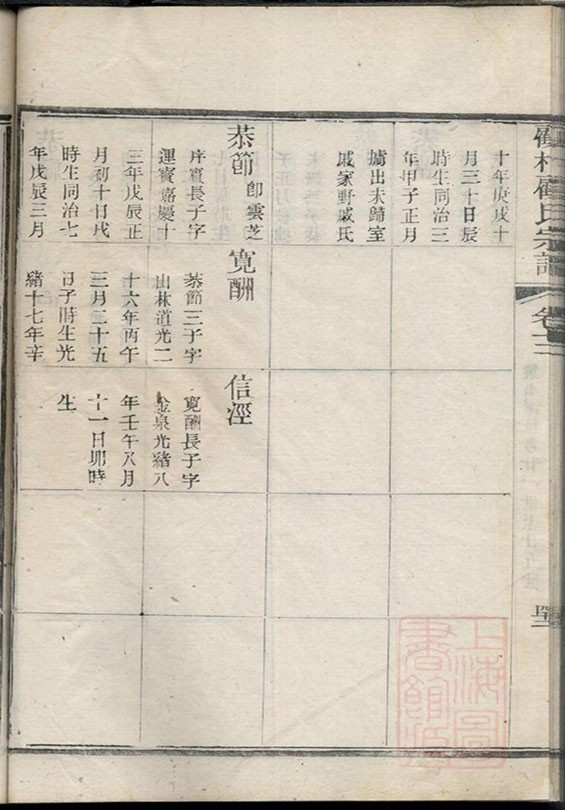 十年庚戌十
月三十日辰
時生同治三
年甲子正月
擄出未歸室
戚家野戚氏
恭節
即雲芝
序賓長子字
運賓嘉慶十
三年戊辰正
月初十日戌
時生同治七
年戊辰三月
寬酬
恭節三子字
山林道光二
十六年丙午
三月二十五
日子時生光
緒十七年辛
信溼
寬酬長子字
金泉光緒八
年壬午八月
十一日卯時
生
氏宗譜
卷十三
上海圖
書館藏